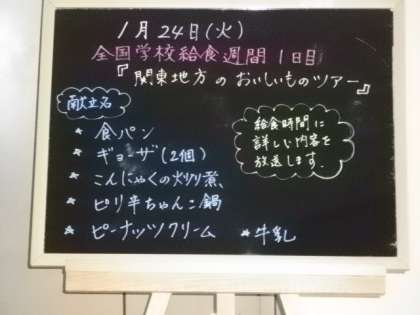 1月24日(火)
全国学校給食週間1日目
『関東地方のおいしいものツアー』
献立名
* 食パン
* ギョーザ(2個)
* こんにゃくの炒り煮
* ピリ辛ちゃんこ鍋
* ピーナッツクリーム * 牛乳
給食時間に
詳しい内容を
放送します.